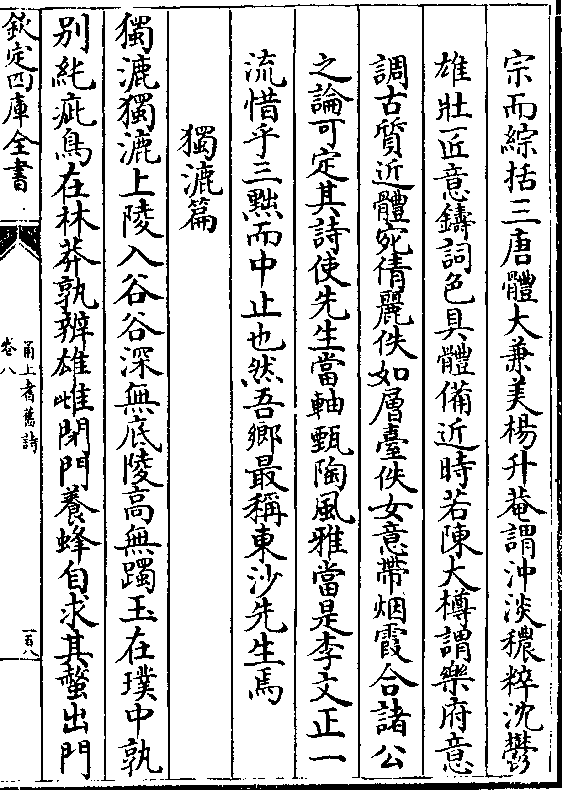 宗而綜括三唐體大兼美楊升菴謂沖淡穠粹沈鬱
雄壯一近意鑄詞色具體備近時若陳大樽謂樂府意
調古質近體宛倩麗佚如層臺佚女意帶烟霞合諸公
之論可定其詩使先生當軸甄陶風雅當是李文正一
流惜乎三黜而中止也然吾鄉最稱東沙先生焉
獨漉篇
獨漉獨漉上陵入谷谷深無底陵高無躅玉在璞中孰
別純疵鳥在林莽孰辨雄雌閉門養蜂自求其螫出門
欽定四庫全書
甬上耆舊詩
卷八
一百八